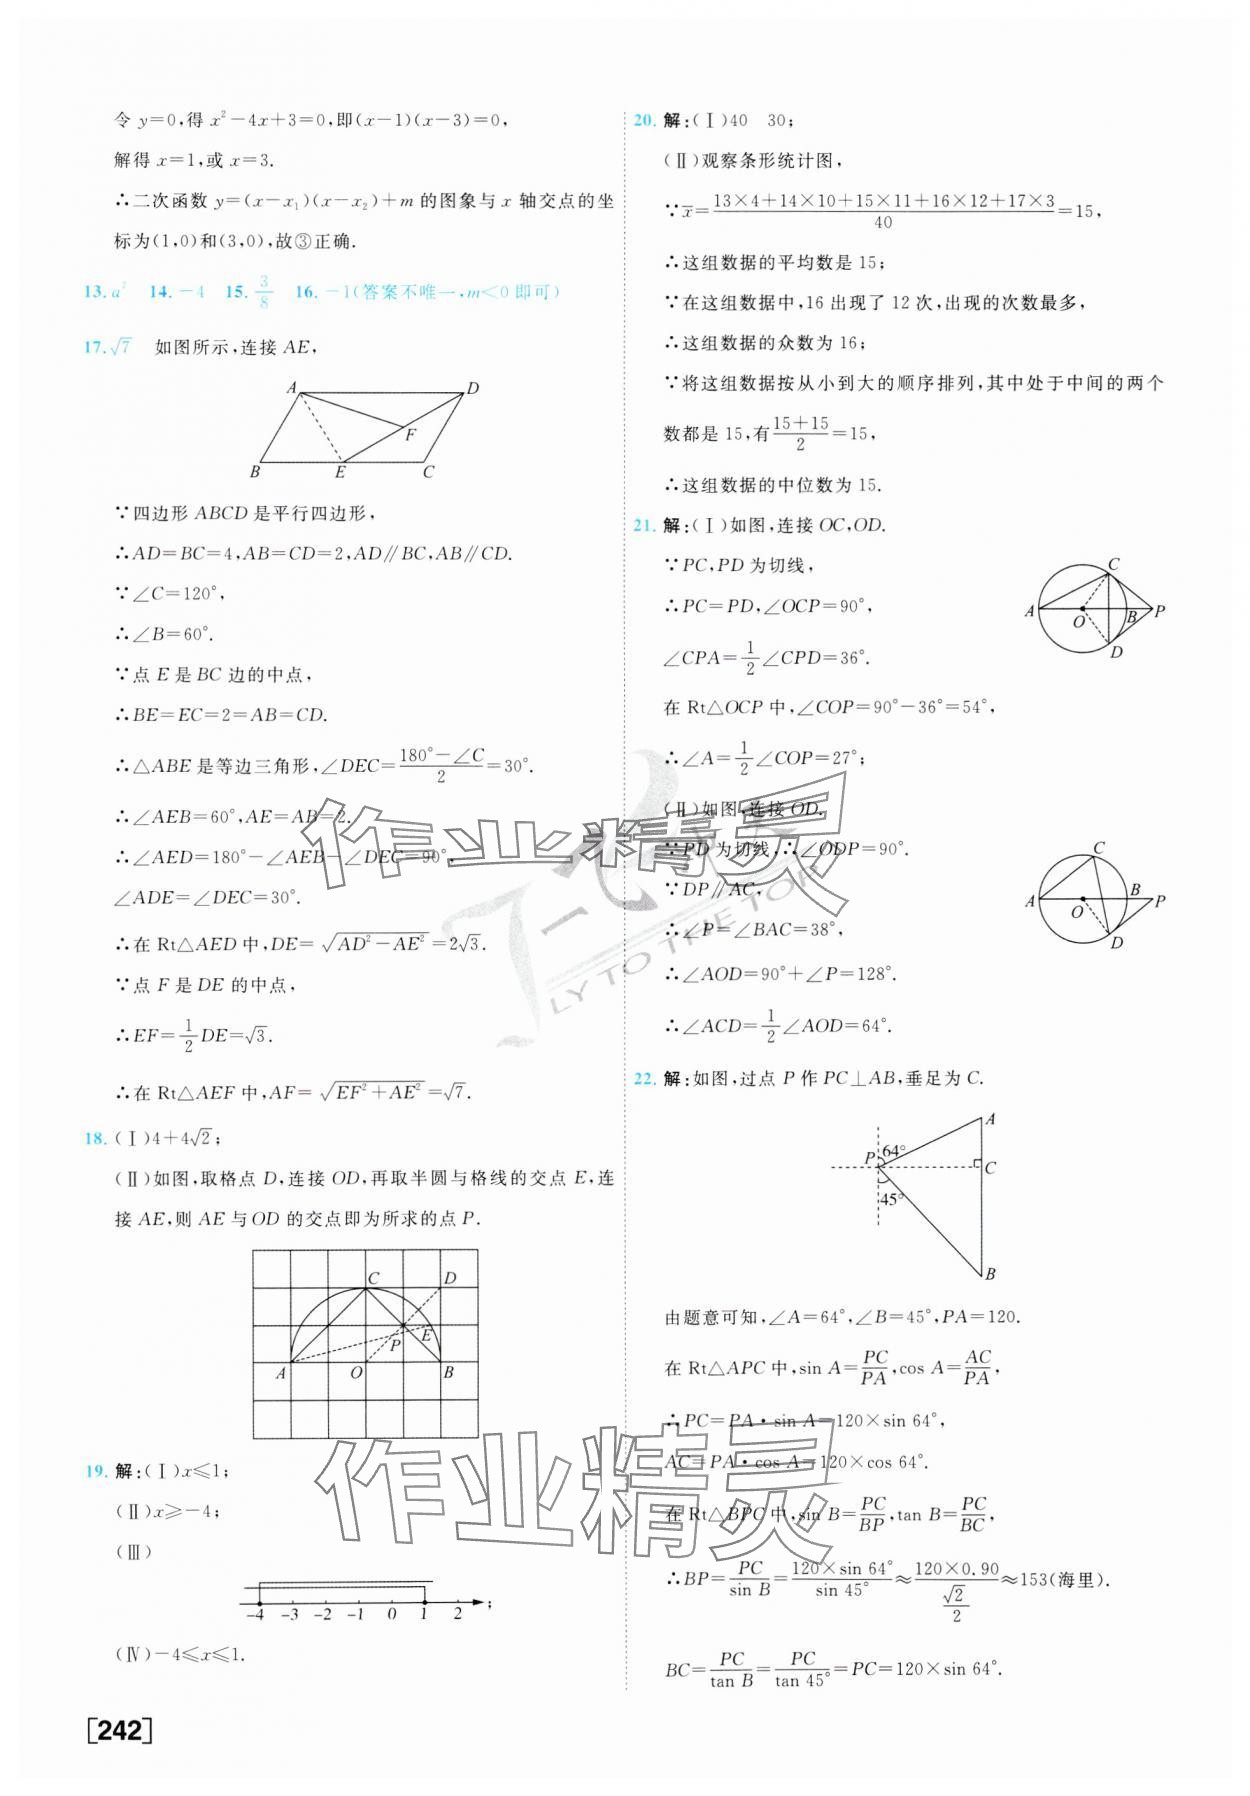 令 y=0,得 x²-4x+3=0,即(x-1)(x-3)=0,
解得 x=1,或 x=3.
∴二次函数 y=(x-x₁)(x-x₂)+m 的图象与 x 轴交点的坐
标为(1,0)和(3,0),故③正确.
13. a² 14. -4 15. 3/8 16. -1(答案不唯一,m<0 即可)
17. √7 如图所示,连接 AE,
A D
F
B E C
∵四边形 ABCD 是平行四边形,
∴AD=BC=4,AB=CD=2,AD∥BC,AB∥CD.
∵∠C=120°,
∴∠B=60°.
∵点 E 是 BC 边的中点,
∴BE=EC=2=AB=CD.
∴△ABE 是等边三角形,∠DEC=(180°-∠C)/2=30°.
∴∠AEB=60°,AE=AB=2.
∴∠AED=180°-∠AEB-∠DEC=90°,
∠ADE=∠DEC=30°.
∴在 Rt△AED 中,DE=√(AD²-AE²)=2√3.
∵点 F 是 DE 的中点,
∴EF=1/2 DE=√3.
∴在 Rt△AEF 中,AF=√(EF²+AE²)=√7.
18. (Ⅰ)4+4√2;
(Ⅱ)如图,取格点 D,连接 OD,再取半圆与格线的交点 E,连
接 AE,则 AE 与 OD 的交点即为所求的点 P.
C D
P E
A O B
19. 解:(Ⅰ)x≤1;
(Ⅱ)x≥-4;
(Ⅲ)
-4 -3 -2 -1 0 1 2 ;
(Ⅳ)-4≤x≤1.
[242]
20. 解:(Ⅰ)40 30;
(Ⅱ)观察条形统计图,
∵x̄=(13×4+14×10+15×11+16×12+17×3)/40=15,
∴这组数据的平均数是 15;
∵在这组数据中,16 出现了 12 次,出现的次数最多,
∴这组数据的众数为 16;
∵将这组数据按从小到大的顺序排列,其中处于中间的两个
数都是 15,有(15+15)/2=15,
∴这组数据的中位数为 15.
21. 解:(Ⅰ)如图,连接 OC,OD.
∵PC,PD 为切线,
∴PC=PD,∠OCP=90°,
∠CPA=1/2∠CPD=36°.
C
A O B P
D
在 Rt△OCP 中,∠COP=90°-36°=54°,
∴∠A=1/2∠COP=27°;
(Ⅱ)如图,连接 OD.
∵PD 为切线,∴∠ODP=90°.
∵DP∥AC,
∴∠P=∠BAC=38°,
∴∠AOD=90°+∠P=128°.
∴∠ACD=1/2∠AOD=64°.
C
A O B P
D
22. 解:如图,过点 P 作 PC⊥AB,垂足为 C.
A
P 64°
C
45°
B
由题意可知,∠A=64°,∠B=45°,PA=120.
在 Rt△APC 中,sin A=PC/PA,cos A=AC/PA,
∴PC=PA·sin A=120×sin 64°,
AC=PA·cos A=120×cos 64°.
在 Rt△BPC 中,sin B=PC/BP,tan B=PC/BC,
∴BP=PC/sin B=(120×sin 64°)/sin 45°≈(120×0.90)/(√2/2)≈153(海里).
BC=PC/tan B=PC/tan 45°=PC=120×sin 64°.
作业精灵
作业精灵